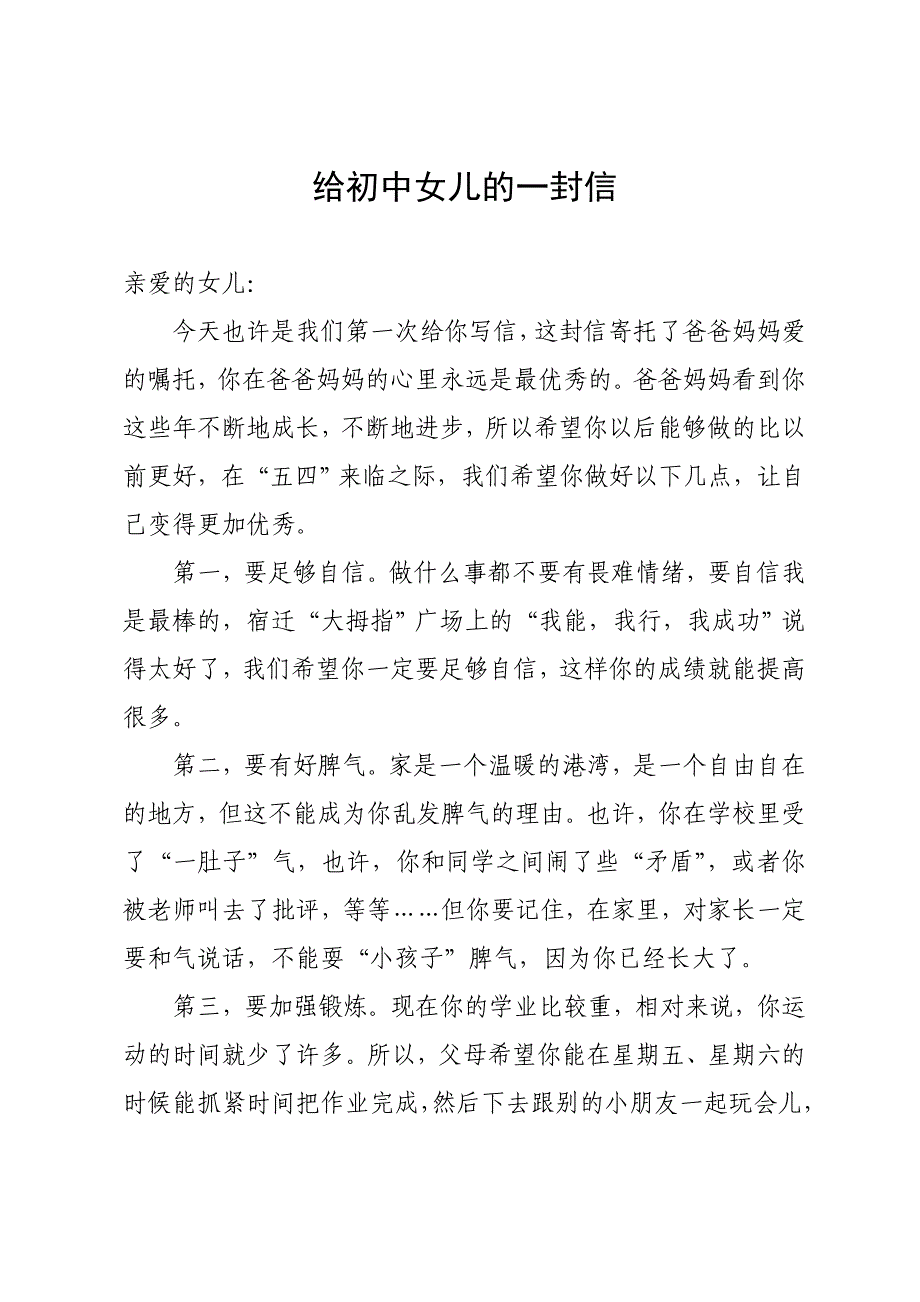 给初中女儿的一封信
亲爱的女儿：
今天也许是我们第一次给你写信，这封信寄托了爸爸妈妈爱
的嘱托，你在爸爸妈妈的心里永远是最优秀的。爸爸妈妈看到你
这些年不断地成长，不断地进步，所以希望你以后能够做的比以
前更好，在“五四”来临之际，我们希望你做好以下几点，让自
己变得更加优秀。
第一，要足够自信。做什么事都不要有畏难情绪，要自信我
是最棒的，宿迁“大拇指”广场上的“我能，我行，我成功”说
得太好了，我们希望你一定要足够自信，这样你的成绩就能提高
很多。
第二，要有好脾气。家是一个温暖的港湾，是一个自由自在
的地方，但这不能成为你乱发脾气的理由。也许，你在学校里受
了“一肚子”气，也许，你和同学之间闹了些“矛盾”，或者你
被老师叫去了批评，等等……但你要记住，在家里，对家长一定
要和气说话，不能耍“小孩子”脾气，因为你已经长大了。
第三，要加强锻炼。现在你的学业比较重，相对来说，你运
动的时间就少了许多。所以，父母希望你能在星期五、星期六的
时候能抓紧时间把作业完成，然后下去跟别的小朋友一起玩会儿，